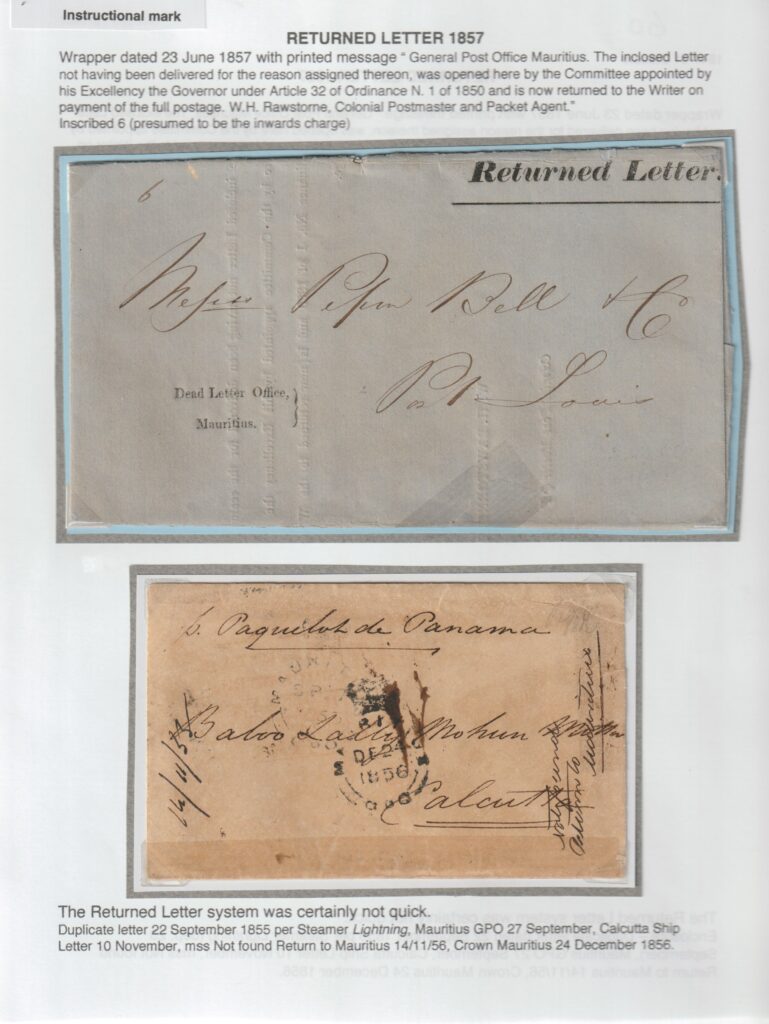 Instructional mark
RETURNED LETTER 1857
Wrapper dated 23 June 1857 with printed message “ General Post Office Mauritius. The inclosed Letter
not having been delivered for the reason assigned thereon, was opened here by the Committee appointed by
his Excellency the Governor under Article 32 of Ordinance N. 1 of 1850 and is now returned to the Writer on
payment of the full postage. W.H. Rawstorne, Colonial Postmaster and Packet Agent.”
Inscribed 6 (presumed to be the inwards charge)
Returned Letter.
6
Messrs Pipon Bell & Co
Port Louis
Dead Letter Office,
Mauritius.
p. Paquebot de Panama
Baboo Lally Mohun
Calcutta
DE 24
1856
14/11/5
Not found
Return to
Mauritius
The Returned Letter system was certainly not quick.
Duplicate letter 22 September 1855 per Steamer Lightning, Mauritius GPO 27 September, Calcutta Ship
Letter 10 November, mss Not found Return to Mauritius 14/11/56, Crown Mauritius 24 December 1856.